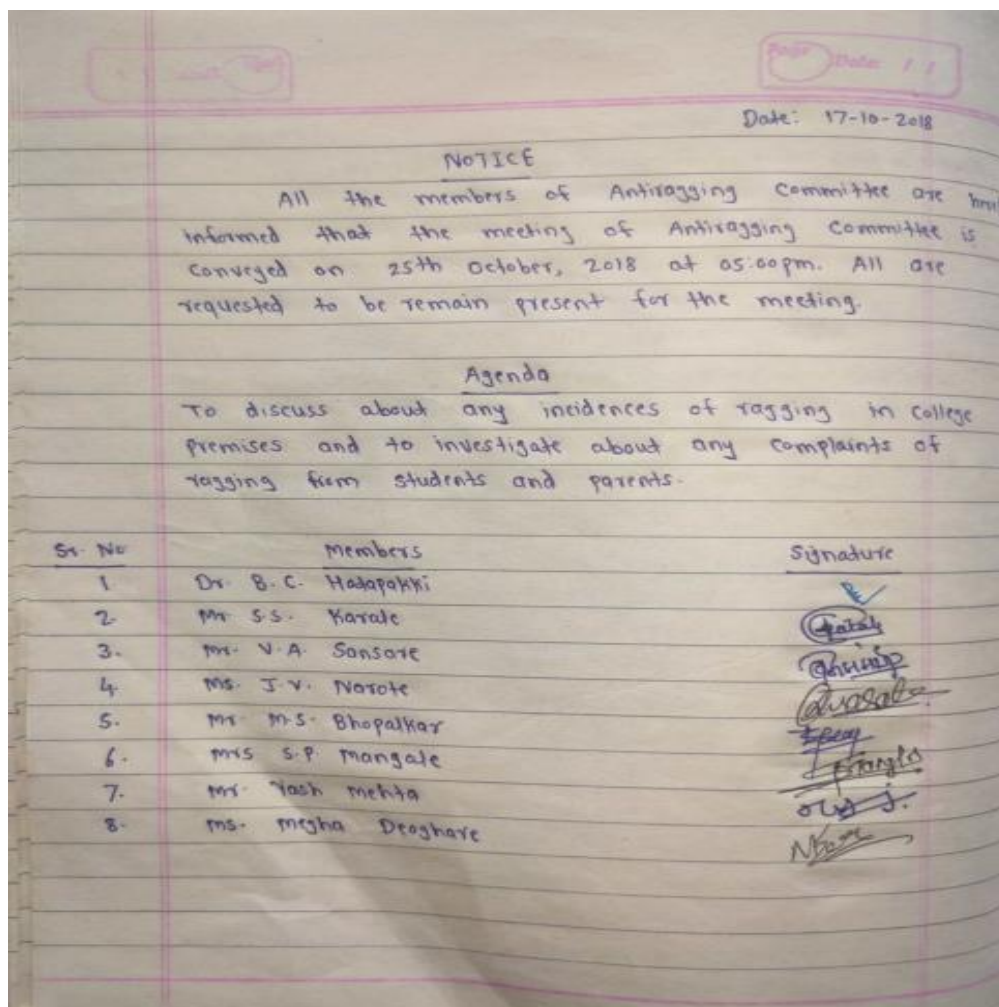 Page Date: / /
Date: 17-10-2018
NOTICE
All the members of Antiragging Committee are
informed that the meeting of Antiragging Committee is
conveyed on 25th October, 2018 at 05:00pm. All are
requested to be remain present for the meeting.
Agenda
To discuss about any incidences of ragging in college
premises and to investigate about any complaints of
ragging from students and parents.
Sr. No Members Signature
1 Dr. B. C. Hatapakki
2. Mr. S.S. Karale
3. Mr. V.A. Sansare
4. Ms. J.V. Narote
5. Mr. M.S. Bhopalkar
6. Mrs S.P. Mangale
7. Mr. Yash Mehta
8. Ms. Megha Deoghare